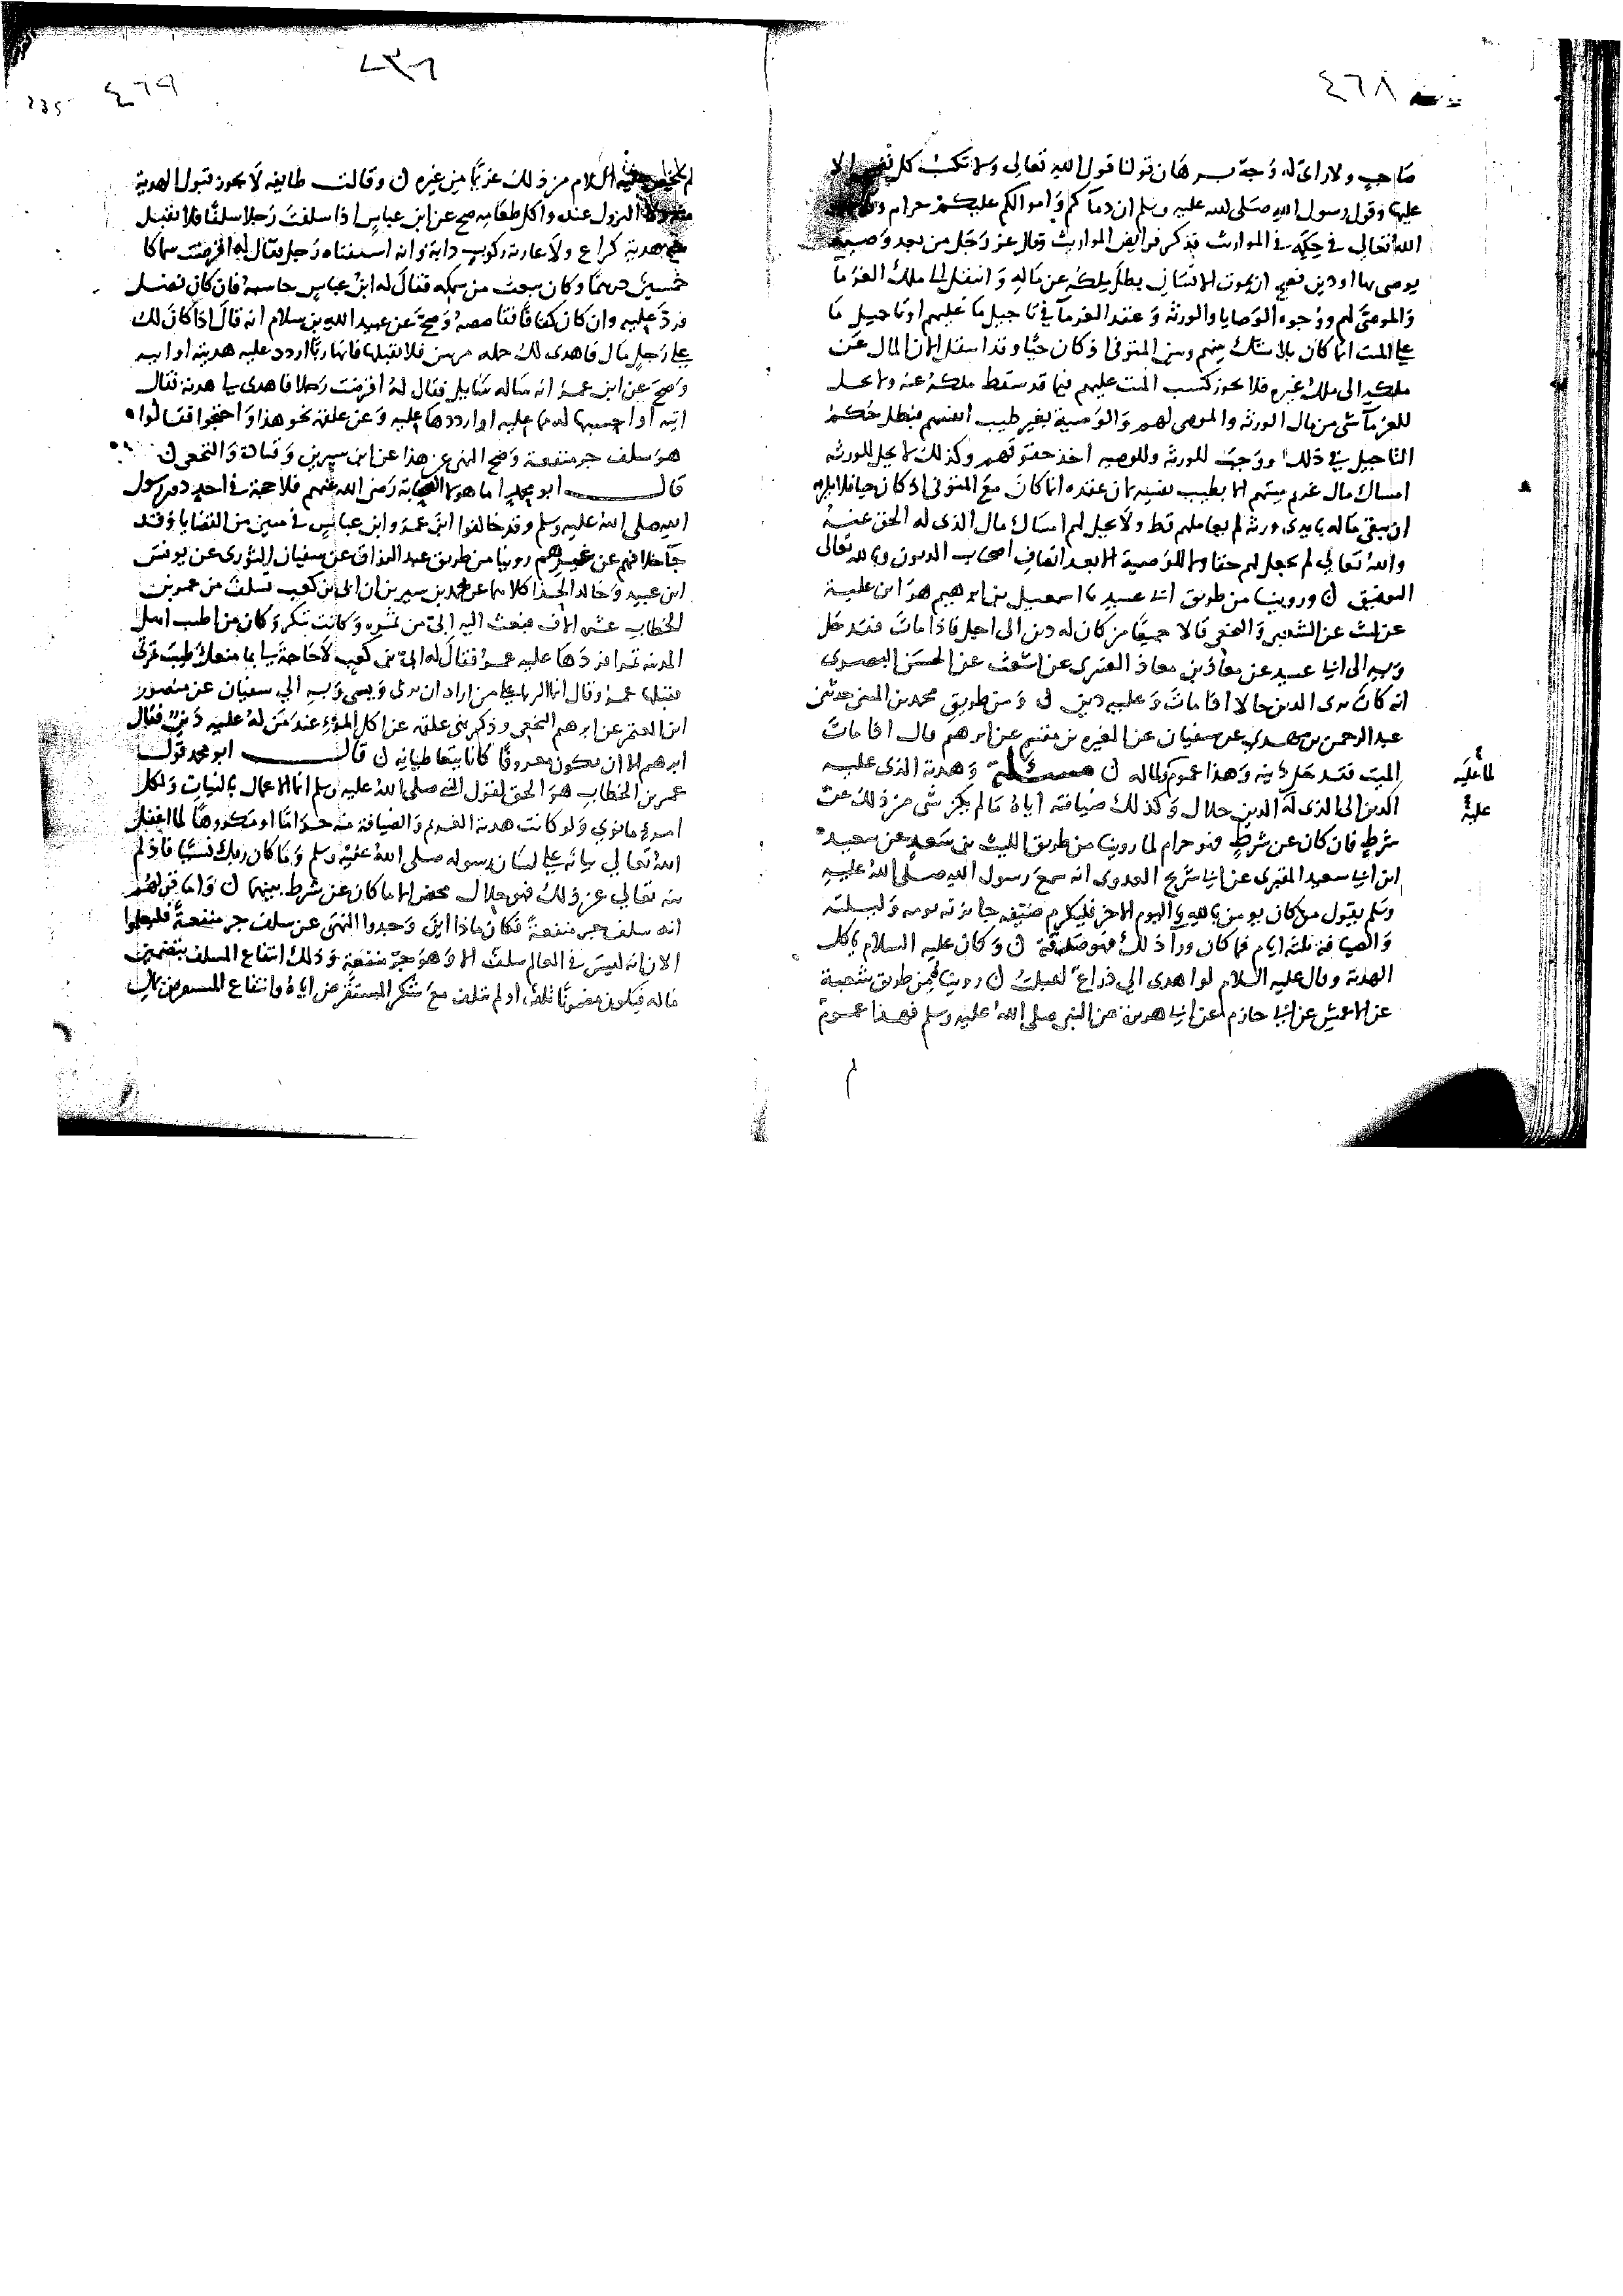 ٤٦٨
صاحب ولا رأى له وجه برهان قولنا قول الله تعالى ولا تكسب كل نفس الا
عليها وقول رسول الله صلى الله عليه وسلم ان دماكم واموالكم عليكم حرام
الله تعالى في حكمه في المواريث فذكر فرايض المواريث وقال عز وجل من بعد وصية
يوصى بها او دين فصح ان بموت الانسان بطل ملكه عن ماله وانتقل الى ملك الغرما
والموصى لهم ووجوه الوصايا والورثه وعقد الغرمآ في تاجيل ما عليهم او تاجيل ما
على الميت انما كان بلا شك بينهم وبين المتوفى اذ كان حيا وقد انتقل الان المال عن
ملكه الى ملك غيره فلا يجوز كسب الميت عليهم فيما قد سقط ملكه عنه ولا يحل
للغرمآ شي من مال الورثه والموصى لهم والوصية بغير طيب انفسهم فبطل حكم
التاجيل في ذلك ووجب للورثه وللوصيه اخذ حقوقهم وكذلك لا يحل للورثه
امساك مال غريم ميتهم الا بطيب نفسه لان عقده انما كان مع المتوفى اذ كان حيا فلا يلزمه
ان يبقى ماله بايدى ورثه لم يعاملهم قط ولا يحل لهم امساك مال الذى له الحق عنه
والله تعالى لم يجعل لهم حقا ولا للوصية الا بعد انصاف اصحاب الديون وبالله تعالى
التوفيق ن وروينا من طريق ابى عبيد نا اسمعيل بن ابرهيم هو ابن علية
عن ليث عن الشعبي والنخعى قالا جميعا من كان له دين الى اجل فاذا مات فقد حل
وبه الى ابي عبيد عن معاذ بن معاذ العنبرى عن اشعث عن الحسن البصرى
انه كان يرى الدين حالا اذا مات وعليه دين ن ومن طريق محمد بن المثنى حدثنى
عبد الرحمن بن مهدى عن سفيان عن المغيره بن مقسم عن ابرهم قال اذا مات
الميت فقد حل دينه وهذا عموم لما له ن مسئلة وهدية الذى عليه
الدين الى الذى له الدين حلال وكذلك ضيافته اياه ما لم يكن شى من ذلك عن
شرط فان كان عن شرط فهو حرام لما روينا من طريق الليث بن سعد عن سعيد
ابن ابي سعيد المقبرى عن ابي شريح العدوى انه سمع رسول الله صلى الله عليه
وسلم يقول من كان يومن بالله واليوم الاخر فليكرم ضيفه جايزته يومه وليلته
والضيافة ثلثه ايام فما كان ورآ ذلك فهو صدقة ن وكان عليه السلام ياكل
الهدية وقال عليه السلام لو اهدى الي ذراع لقبلت ن روينا من طريق شعبة
عن الاعمش عن ابي حازم عن ابي هريرة عن النبى صلى الله عليه وسلم فهذا عموم
لما عليه
علية
٤٦٩
235
لم يخص عليه السلام من ذلك غريما من غيره ن وقالت طايفه لا يجوز قبول الهدية
منه ولا النزول عنده واكل طعامه صح عن ابن عباس اذا سلفت رجلا سلفا فلا تقبل
منه هدية كراع ولا عارية ركوب دابة وانه استفتاه رجل فقال له اقرضت سماكا
خمسين درهما وكان يبعث من سمكه فقال له ابن عباس حاسبه فان كان فضل
فرد عليه وان كان كفافا فقاصصه وصح عن عبد الله بن سلام انه قال اذا كان لك
على رجل مال فاهدى لك حمله من تبن فلا تقبلها فانها ربا اردد عليه هديته او اثبه
وصح عن ابن عمر انه ساله سايل فقال له اقرضت رجلا فاهدى لى هدية فقال
اثبه او احسبها له مما عليه او ارددها عليه وعن علقمه نحو هذا واحتجوا فقالوا
هو سلف جر منفعة وصح النهى عن هذا عن ابن سيرين وقتادة والنخعى ن
قال ابو محمد اما هولا الصحابة رضى الله عنهم فلا حجة في احد دون رسول
الله صلى الله عليه وسلم وقد خالفوا ابن عمر وابن عباس في مئين من القضايا وقد
جآ خلافهم عن غيرهم روينا من طريق عبد الرزاق عن سفيان الثورى عن يونس
ابن عبيد وخالد الحذا كلاهما عن محمد بن سيرين ان ابى بن كعب تسلف من عمر بن
الخطاب عشره الاف فبعث اليه ابى من تمره وكانت تبكر وكان من اطيب اهل
المدينه تمرا فردها عليه عمر فقال له ابى بن كعب لا حاجة لى بما منعك طيب ثمرتى
فقبلها عمر وقال انما الربا على من اراد ان يربى وينسى وبه الي سفيان عن منصور
ابن المعتمر عن ابرهم النخعى وذكر بنى علقمه عن اكل المرء عند من له عليه دين فقال
ابرهم الا ان يكون معروفا كانا يتعاطيانه ن قال ابو محمد قول
عمر بن الخطاب هو الحق لقول النبى صلى الله عليه وسلم انما الاعمال بالنيات ولكل
امرء ما نوي ولو كانت هدية الغريم والضيافة منه حراما او مكروها لما اغفل
الله تعالي بيانه على لسان رسوله صلى الله عليه وسلم وما كان ربك نسيا فاذ لم
ينه تعالي عن ذلك فهو حلال محض الا ما كان عن شرط بينهما ن واما قولهم
انه سلف جر منفعة فكان ماذا اين وجدوا النهى عن سلف جر منفعة فليعلموا
الان انه ليس في العالم سلف الا وهو جر منفعة وذلك انتفاع المسلف بتضمين
ماله فيكون مضمونا تلف او لم يتلف مع شكر المستقرض اياه وانتفاع المستقرض بمال